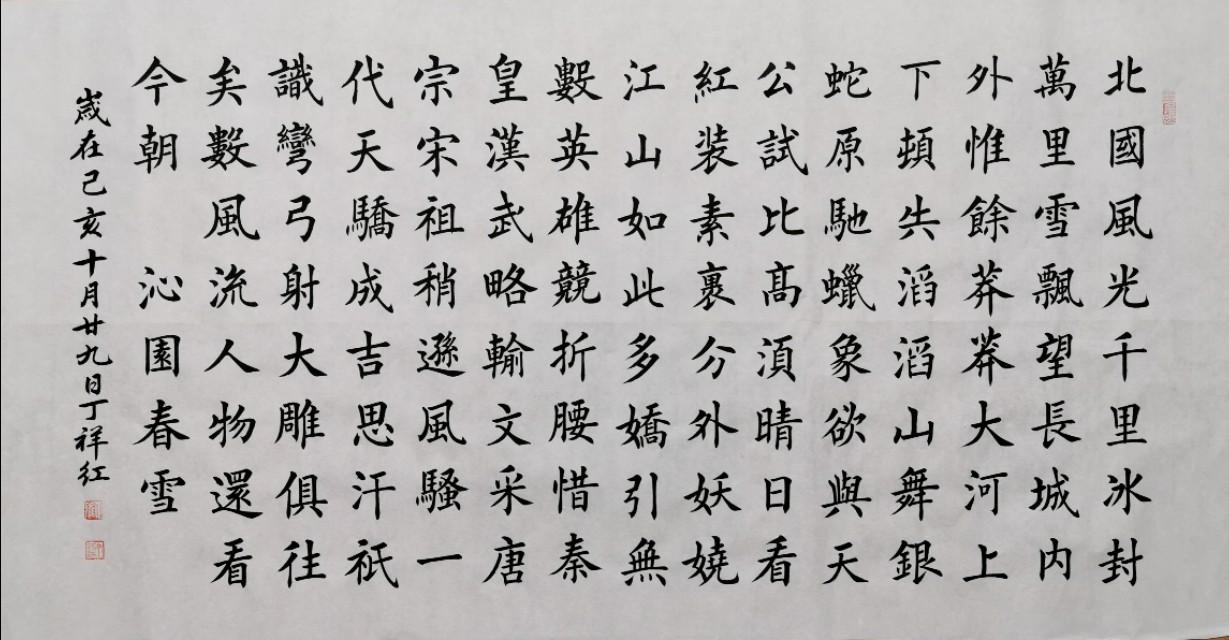 北國風光千里冰封
萬里雪飄望長城内
外惟餘莽莽大河上
下頓失滔滔山舞銀
蛇原馳蠟象欲與天
公試比髙須晴日看
紅装素裹分外妖嬈
江山如此多嬌引無
數英雄競折腰惜秦
皇漢武略輸文采唐
宗宋祖稍遜風騷一
代天驕成吉思汗祇
識彎弓射大雕俱往
矣數風流人物還看
今朝 沁園春雪
歲在己亥十月廿九日丁祥红